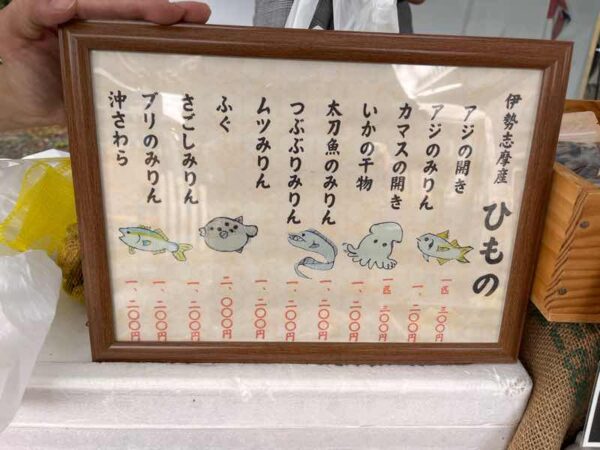 伊勢志摩産 ひもの
アジの開き 一匹 三〇〇円
アジのみりん 一、二〇〇円
カマスの開き 一匹 三〇〇円
いかの干物 一、二〇〇円
太刀魚のみりん 一、二〇〇円
つぶぶりみりん 一、二〇〇円
ムツみりん 一、二〇〇円
ふぐ 二、〇〇〇円
さごしみりん 一、二〇〇円
ブリのみりん 一、二〇〇円
沖さわら 一、二〇〇円